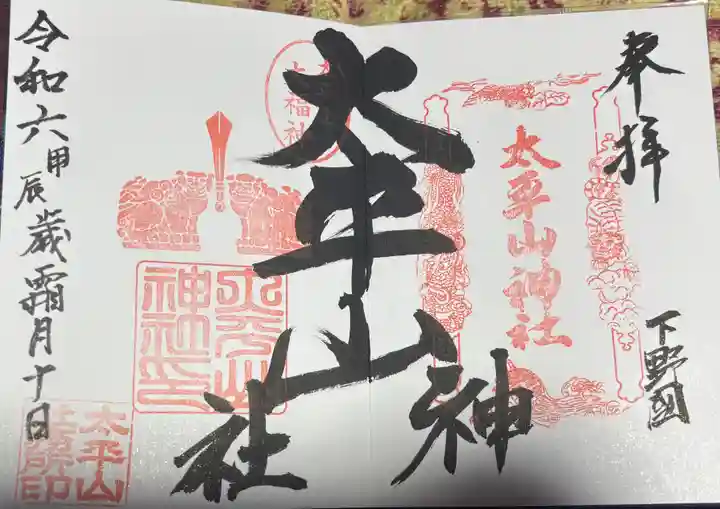 奉拝
下野国
太平山神社
太平山
神社
令和六甲辰歳霜月十日
太平山
神社印
太平山